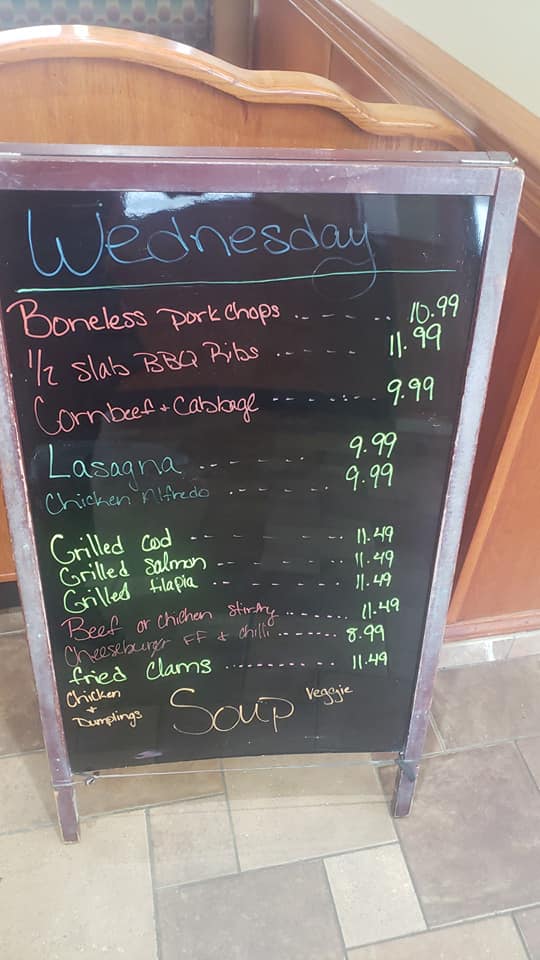 Wednesday
Boneless Pork Chops ...... 10.99
1/2 Slab BBQ Ribs ..---- 11.99
Cornbeef + Cabbage ------- 9.99
Lasagna ..---. 9.99
Chicken Alfredo .----. 9.99
Grilled Cod ------.. 11.49
Grilled Salmon -----.. 11.49
Grilled tilapia ..------ 11.49
Beef or chicken stirfry ...... 11.49
Cheeseburger FF & chili ....... 8.99
fried Clams .......... 11.49
Chicken
+
Dumplings
Soup
Veggie